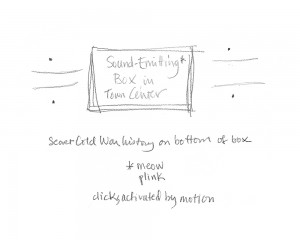 Sound-Emitting*
Box in
Town Center
Secret Cold War history on bottom of box
*meow
plink
clicks, activated by motion